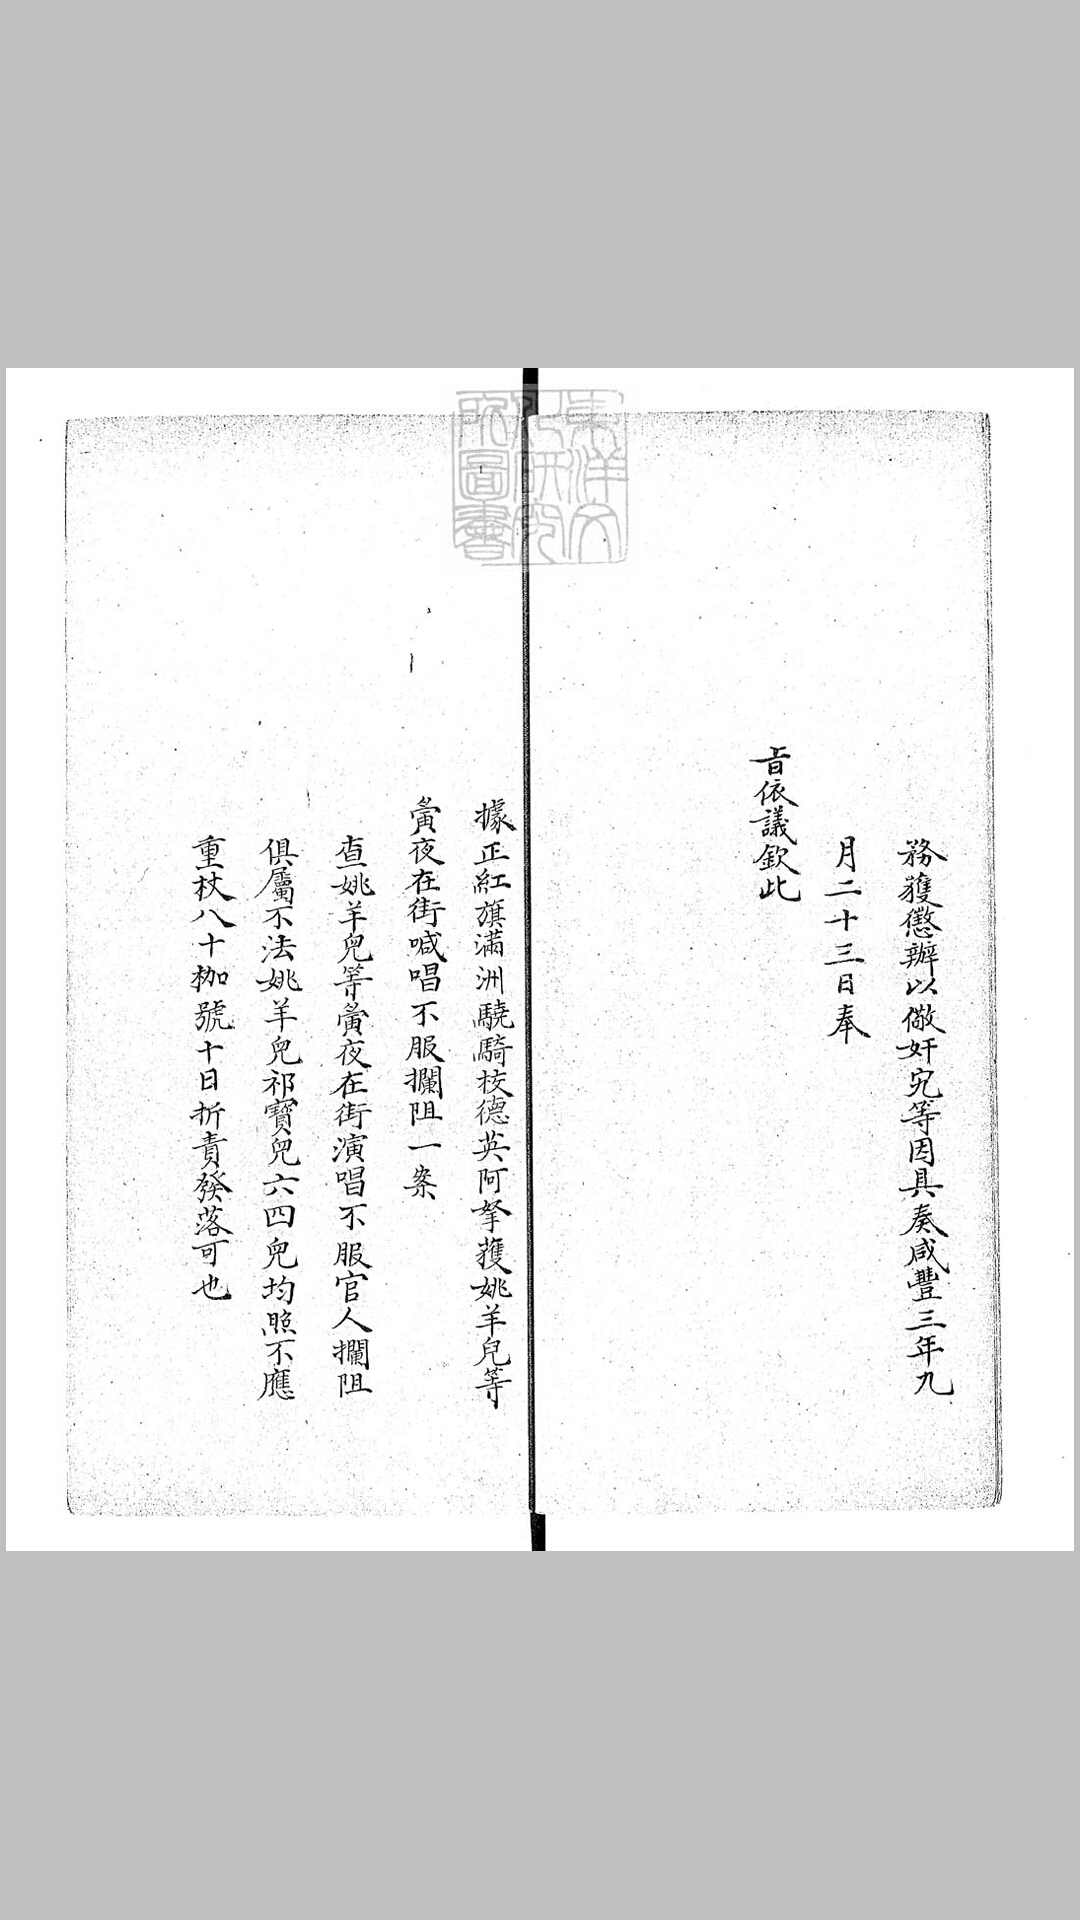 務獲懲辦以儆奸宄等因具奏咸豐三年九
月二十三日奉
旨依議欽此
據正紅旗滿洲驍騎校德英阿拏獲姚羊兒等
夤夜在街喊唱不服攔阻一案
查姚羊兒等夤夜在街演唱不服官人攔阻
俱屬不法姚羊兒祁寶兒六四兒均照不應
重杖八十枷號十日折責發落可也
東洋文
化研究
所圖書